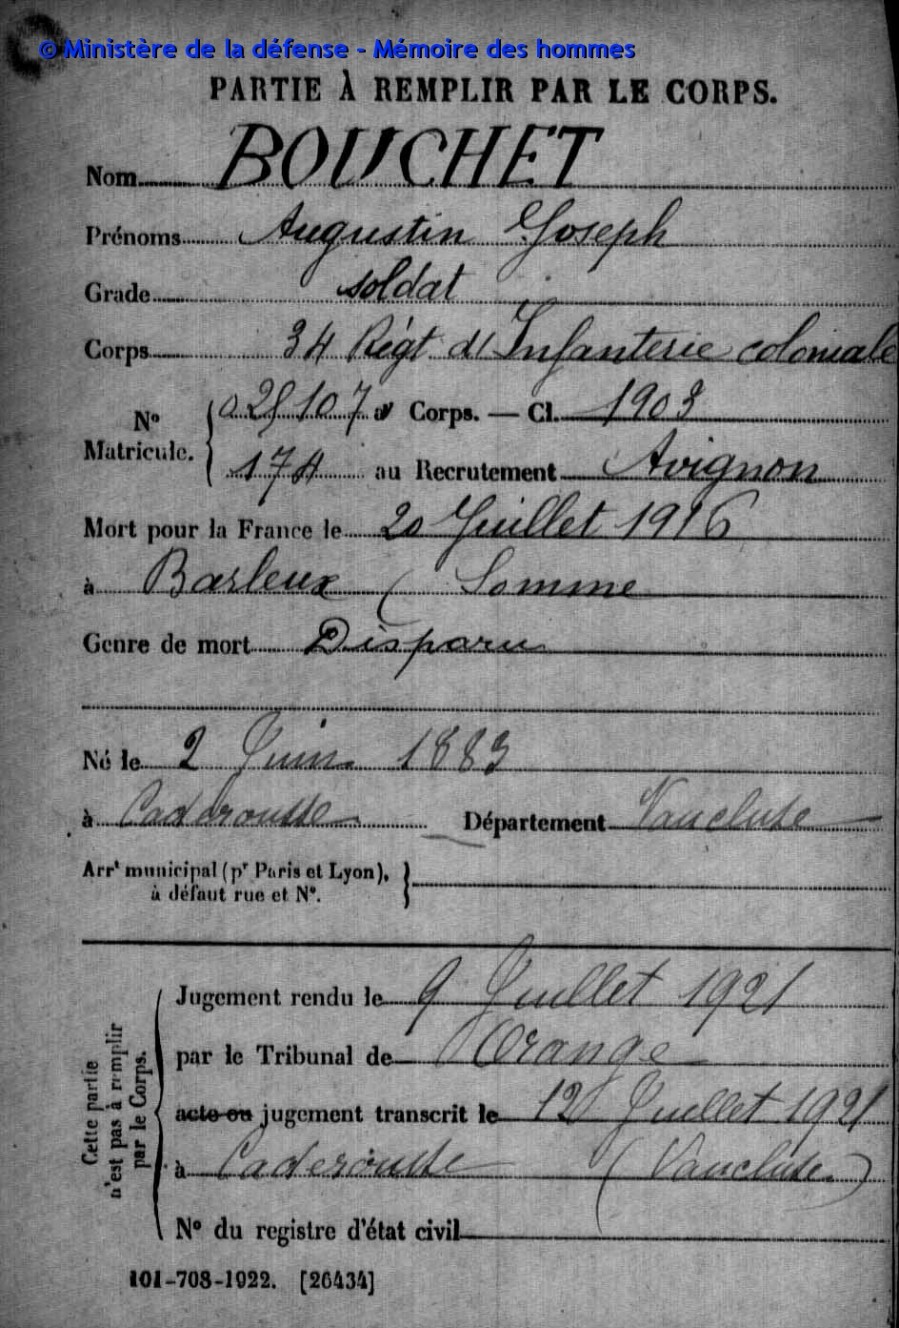 © Ministère de la défense - Mémoire des hommes
PARTIE À REMPLIR PAR LE CORPS.
Nom BOUCHET
Prénoms Augustin Joseph
Grade soldat
Corps 34 Régt d'Infanterie coloniale
N° Matricule. 025107 au Corps. — Cl. 1903
174 au Recrutement Avignon
Mort pour la France le 20 Juillet 1916
à Barleux ( Somme
Genre de mort Disparu
Né le 2 Juin 1883
à Caderousse Département Vaucluse
Arrt municipal (pr Paris et Lyon),
à défaut rue et N°.
Cette partie n'est pas à remplir par le Corps.
Jugement rendu le 9 Juillet 1921
par le Tribunal de Orange
acte ou jugement transcrit le 12 Juillet 1921
à Caderousse (Vaucluse)
N° du registre d'état civil
101-708-1922. [26434]